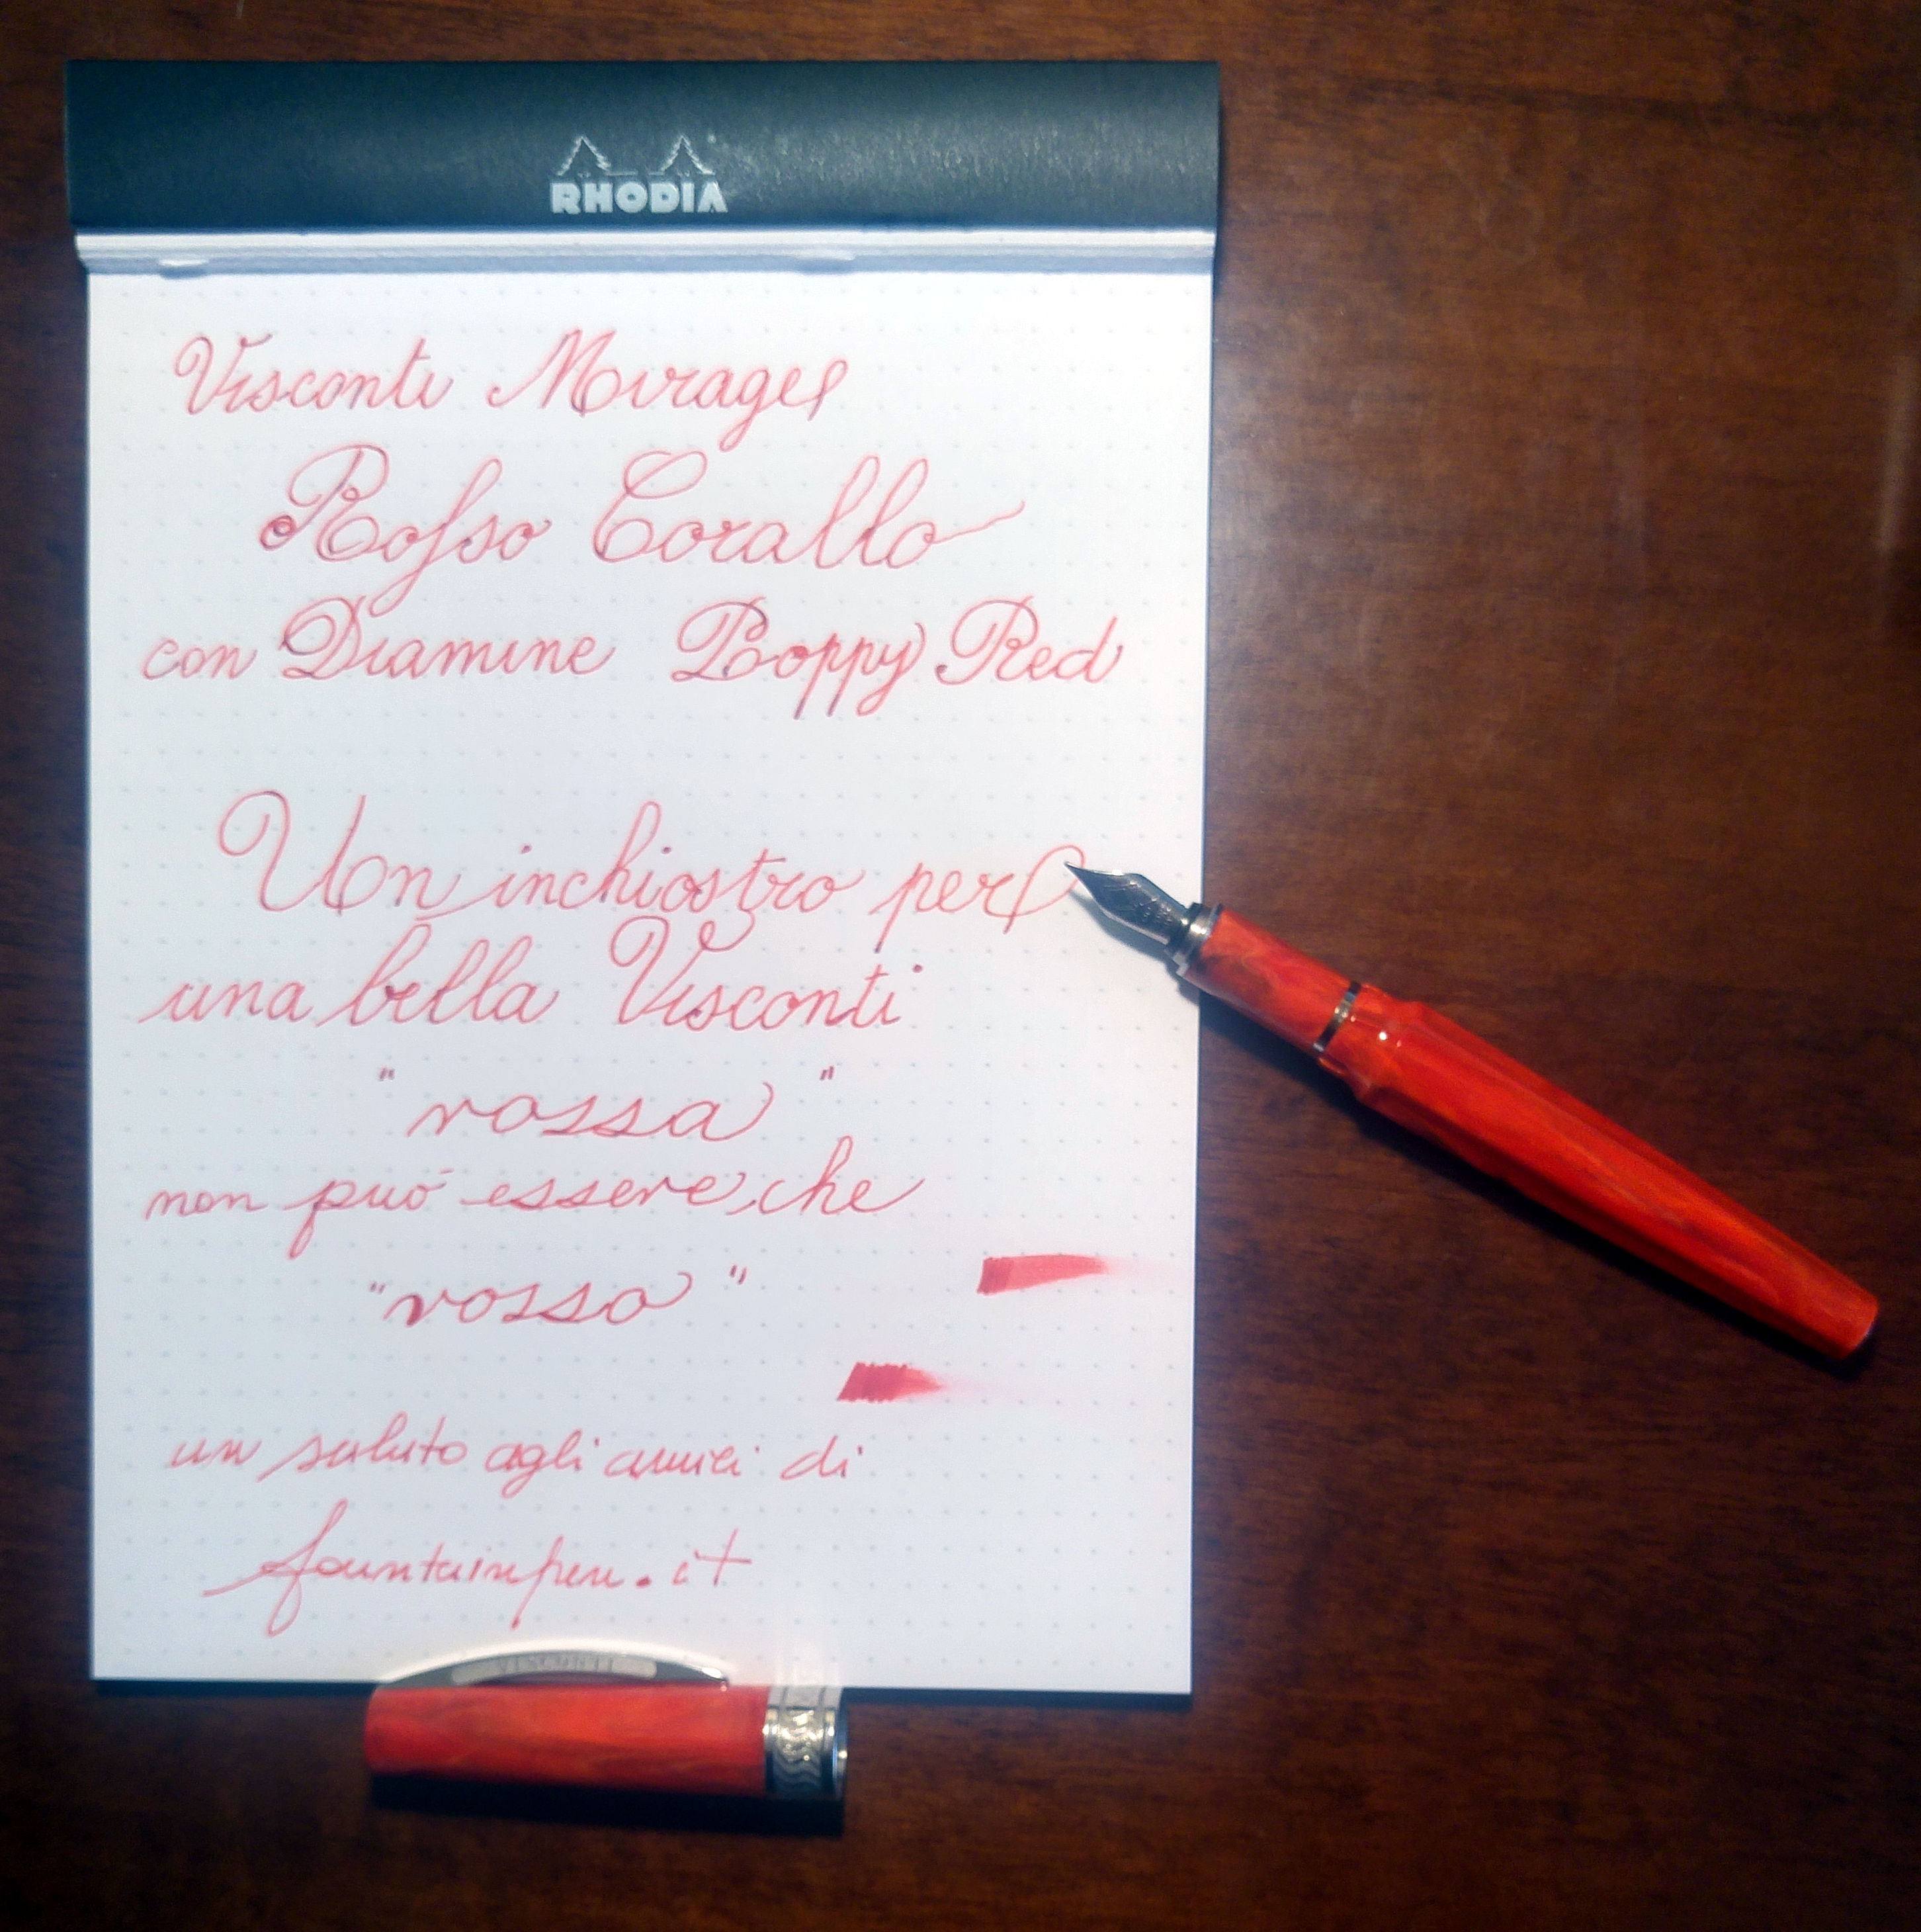 RHODIA
Visconti Mirage
Rosso Corallo
con Diamine Poppy Red
Un inchiostro per
una bella Visconti
"rossa"
non può essere che
"rosso"
un saluto agli amici di
fountainpen.it
VISCONTI